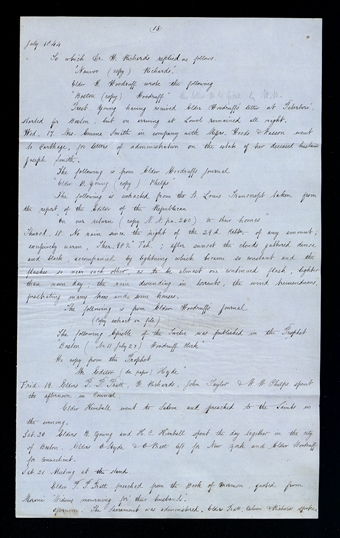 (14)
July 1844
To which Dr. W. Richards replied as follows.
"Nauvoo (copy) Richards".
Elder W. Woodruff wrote the following
"Boston (copy) Woodruff"
Prest. Young having received Elder Woodruff's letter at Peterboro'
started for Boston, but on arriving at Lowel remained all night.
Wed. 17. Mrs. Emma Smith in company with Messrs. Woods & Wasson went
to Carthage, for letters of administration on the estate of her deceased husband
Joseph Smith.
The following is from Elder Woodruff's Journal
"Elder B. Young (copy) Phelps
The following is extracted from the St Louis Transcript taken from
the report of the Editor of the Republican
On our return (copy N. N. pa. 202) in their homes
Thursd. 18. No rain since the night of the 24th of any amount,
excessively warm, Ther. 98½° Fah.; after sunset the clouds gathered dense,
and black accompanied by lightning which became so constant and the
flashes so near each other, as to be almost one continued flash, lighter
than noon day; the rain descending in torrents, the wind tremendous,
prostrating many trees and some houses.
The following is from Elder Woodruff's journal
(copy extract on file)
The following Epistle of the Twelve was published in the Prophet
Boston (No. 11 July 27) Woodruff Clerk"
We copy from the Prophet
"Mr. Editor (see paper) Hyde"
Frid. 19. Elders P. P. Pratt, W. Richards, John Taylor & W. W. Phelps spent
the afternoon in Council
Elder Kimball went to Salem and preached to the Saints in
the evening.
Sat. 20 Elders B. Young and H. C. Kimball spent the day together in the city
of Boston. Elders O. Hyde & O. Pratt left for New York and Elder Woodruff
for Connecticut.
Sat. 21 Meeting at the stand
Elder P. P. Pratt preached from the Book of Mormon
mourning for their husbands.
afternoon. The Sacrament was administered, Elders Pratt,